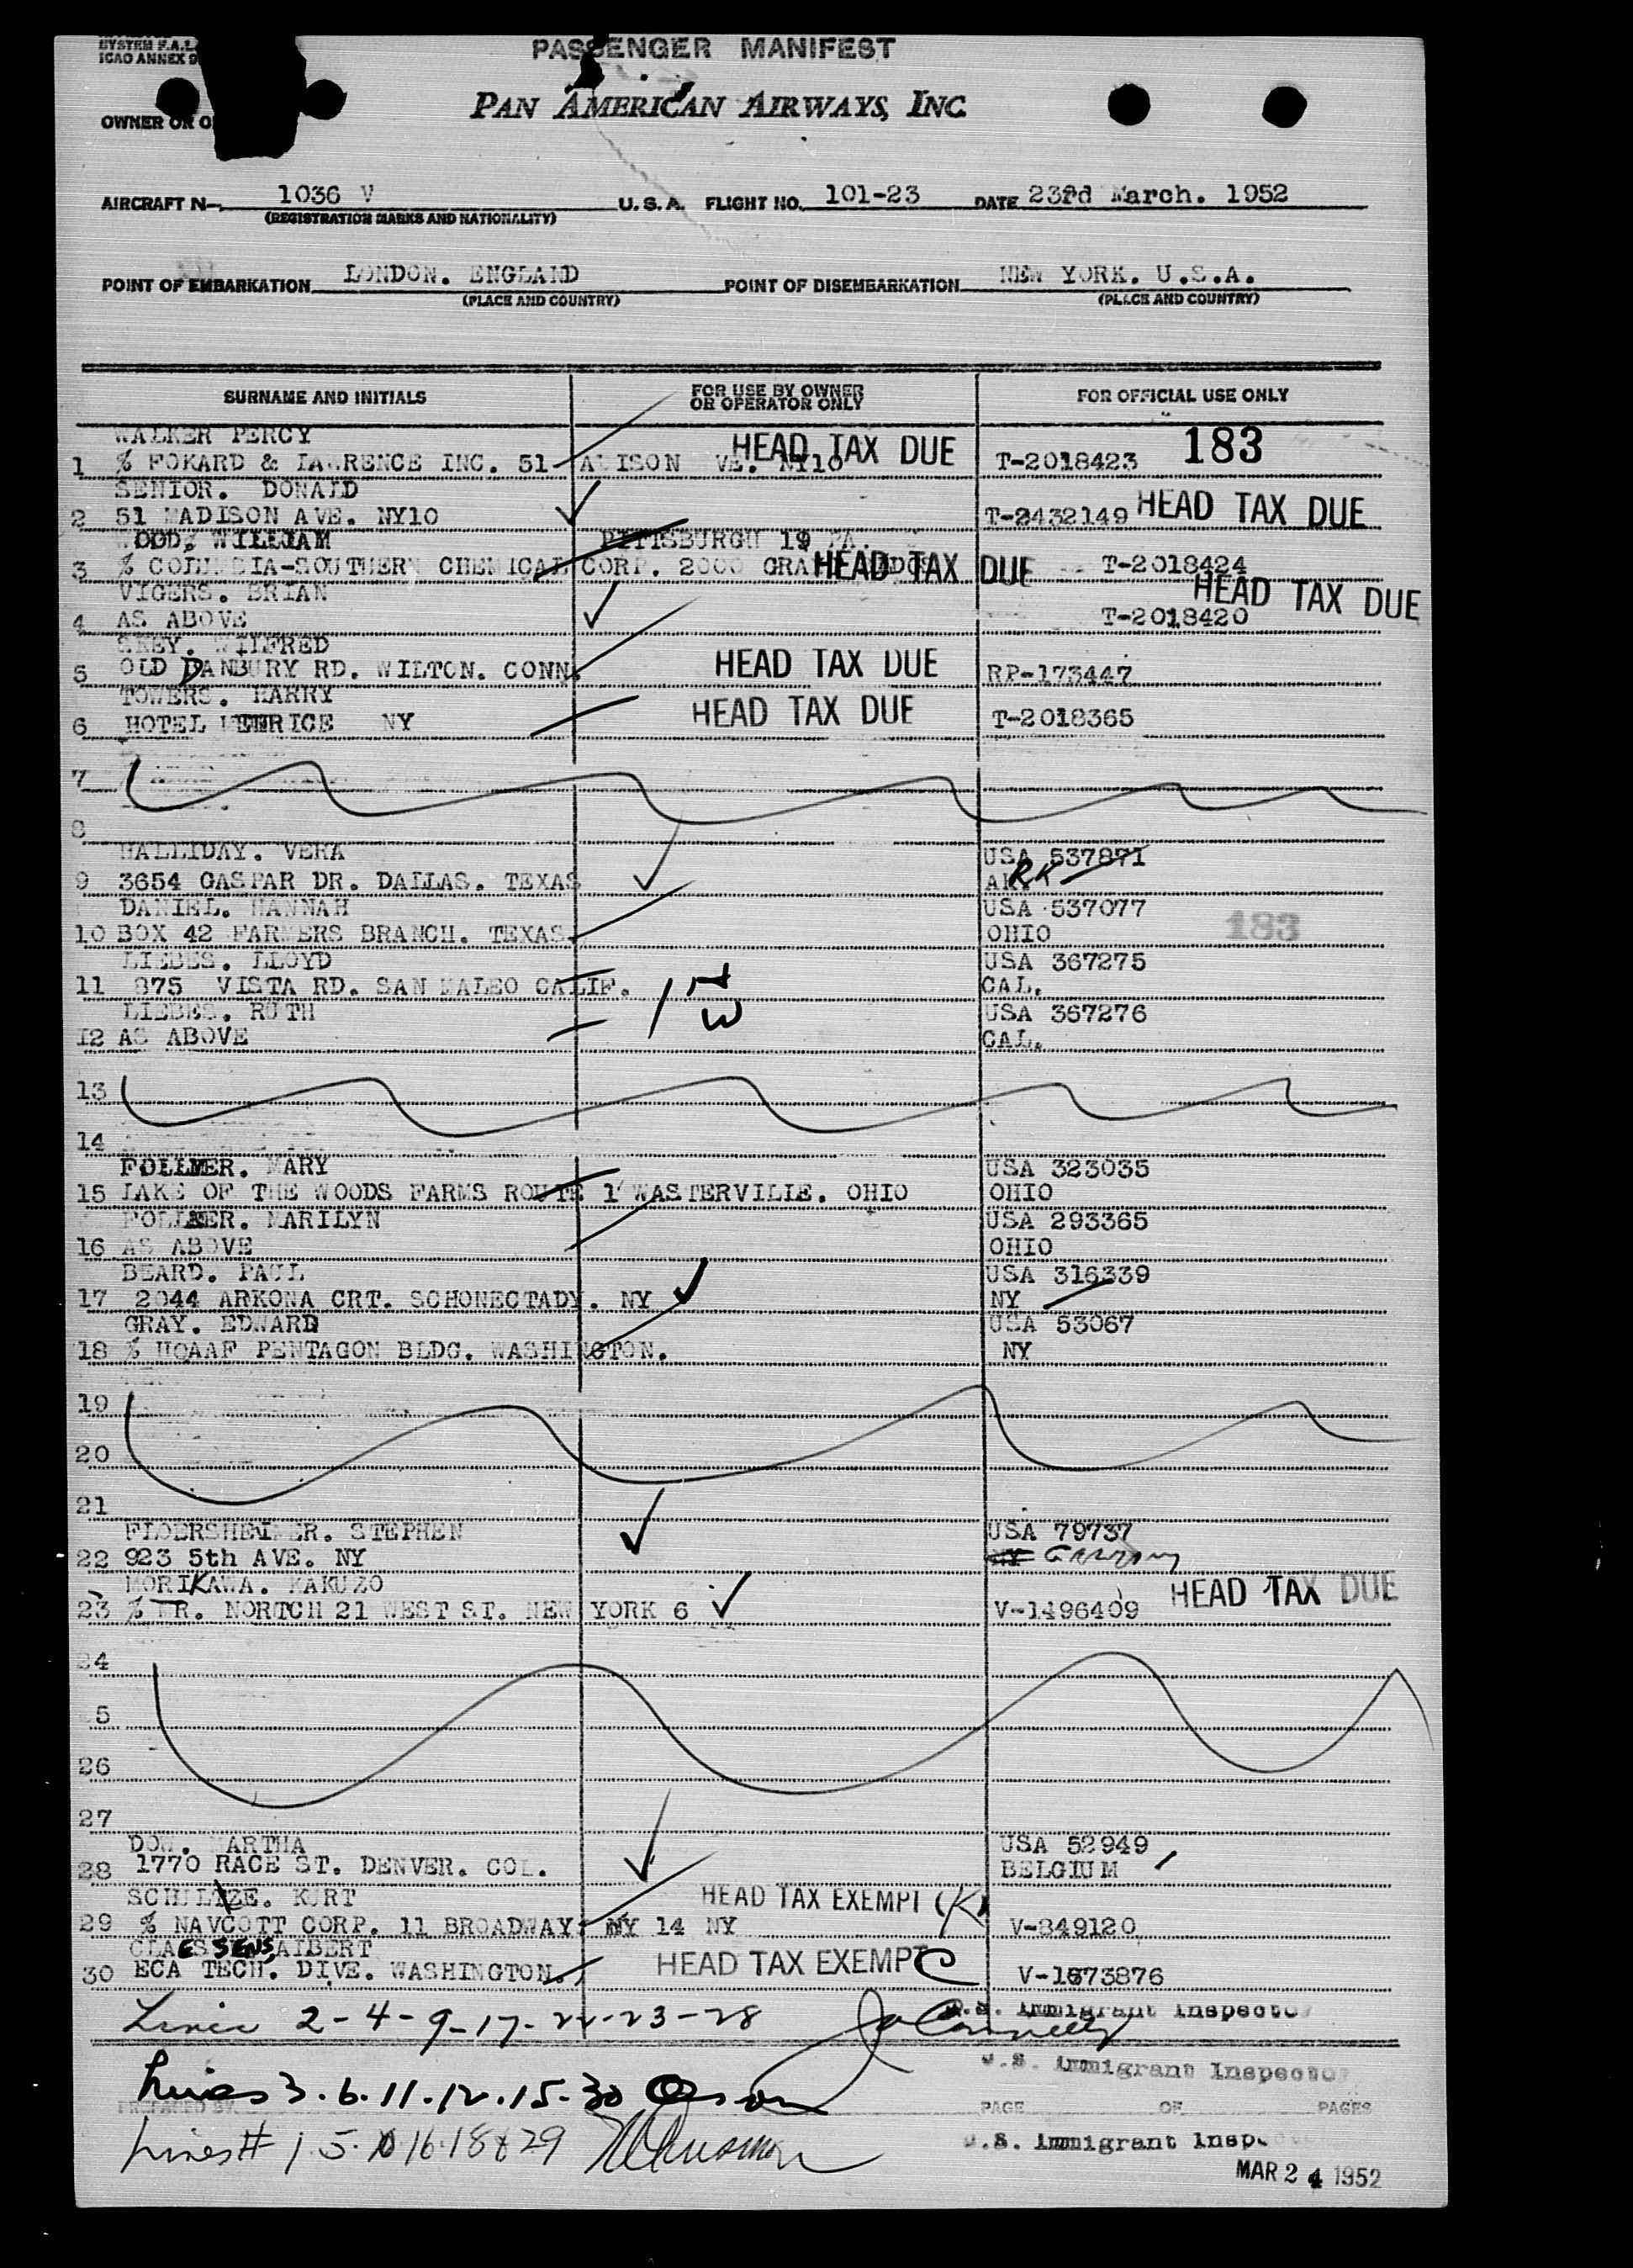 SYSTEM F.A.L.
ICAO ANNEX 9
PASSENGER MANIFEST
PAN AMERICAN AIRWAYS, INC.
OWNER OR O
AIRCRAFT N- 1036 V U.S.A. FLIGHT NO. 101-23 DATE 23rd March. 1952
(REGISTRATION MARKS AND NATIONALITY)
POINT OF EMBARKATION LONDON. ENGLAND POINT OF DISEMBARKATION NEW YORK. U.S.A.
(PLACE AND COUNTRY) (PLACE AND COUNTRY)
SURNAME AND INITIALS FOR USE BY OWNER OR OPERATOR ONLY FOR OFFICIAL USE ONLY
WALKER PERCY HEAD TAX DUE 183
1 % FOKARD & LAWRENCE INC. 51 MADISON AVE. NY10 T-2018423
SENIOR. DONALD
2 51 MADISON AVE. NY10 T-2432149 HEAD TAX DUE
WOOD. WILLIAM PITTSBURGH 19 PA.
3 % COLUMBIA-SOUTHERN CHEMICAL CORP. 2000 GRA HEAD TAX DUE T-2018424
VIGERS. BRIAN HEAD TAX DUE
4 AS ABOVE T-2018420
WILFRED
5 OLD DANBURY RD. WILTON. CONN. HEAD TAX DUE RP-173447
TOWERS. HARRY
6 HOTEL NY HEAD TAX DUE T-2018365
7
8
HALLIDAY. VERA USA 537871
9 3654 GASPAR DR. DALLAS. TEXAS RK
DANIEL. HANNAH USA 537077
10 BOX 42 FARMERS BRANCH. TEXAS. OHIO 183
LIEBES. LLOYD USA 367275
11 875 VISTA RD. SAN MALEO CALIF. CAL.
LIEBES. RUTH H W USA 367276
12 AS ABOVE CAL.
13
14
FOLLMER. MARY USA 323035
15 LAKE OF THE WOODS FARMS ROUTE 1 WASTERVILLE. OHIO OHIO
FOLLMER. MARILYN USA 293365
16 AS ABOVE OHIO
BEARD. PAUL USA 316339
17 2044 ARKONA CRT. SCHONECTADY. NY NY
GRAY. EDWARD USA 53067
18 % HQAAF PENTAGON BLDG. WASHINGTON. NY
19
20
21
FLOERSHEIMER. STEPHEN USA 79737
22 923 5th AVE. NY NY Germany
MORIKAWA. KAKUZO HEAD TAX DUE
23 % MR. NORTCH 21 WEST ST. NEW YORK 6 V-1496409
24
25
26
27
DOW. MARTHA USA 52949
28 1770 RACE ST. DENVER. COL. BELGIUM
SCHULTZE. KURT HEAD TAX EXEMPT (K)
29 % NAVCOTT CORP. 11 BROADWAY. NY 14 NY V-849120
CLAESSENS, ALBERT HEAD TAX EXEMPT C
30 ECA TECH. DIVE. WASHINGTON. V-1673876
Lines 2-4-9-17-22-23-28 U.S. Immigrant Inspector
U.S. Immigrant Inspector
Lines 3.6.11.12.15.30
PREPARED BY PAGE OF PAGES
Lines # 1 5 10 16 18 & 29 U.S. Immigrant Insp
MAR 24 1952